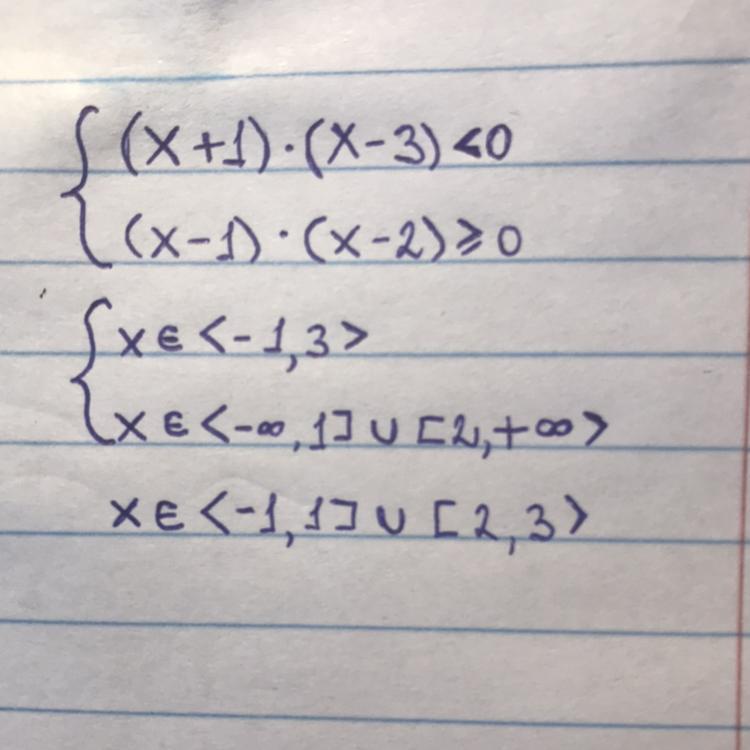 { (x+1)·(x-3)<0
(x-1)·(x-2)⩾0
{ x∈<-1,3>
x∈<-∞,1]∪[2,+∞>
x∈<-1,1]∪[2,3>